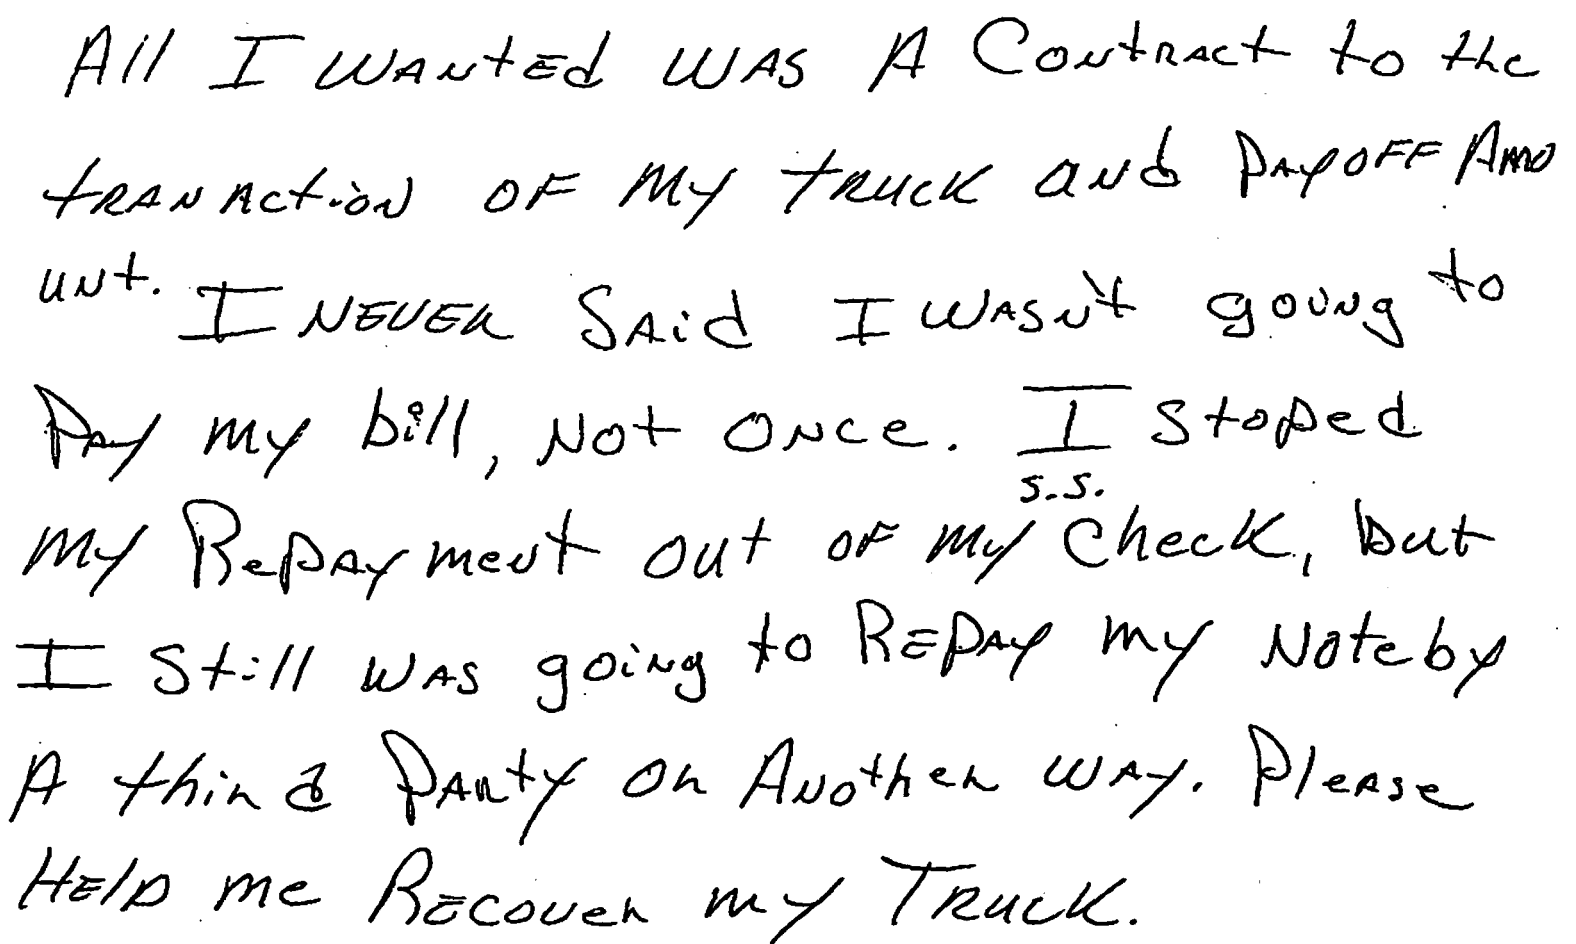 All I wanted was A Contract to the
tranaction of my truck and Payoff Amo
unt. I never Said I wasn't goung to
Pay my bill, not once. I stoped
s.s.
my Repayment out of my check, but
I still was going to Repay my Note by
A third Party or Another way. Please
Help me Recover my Truck.